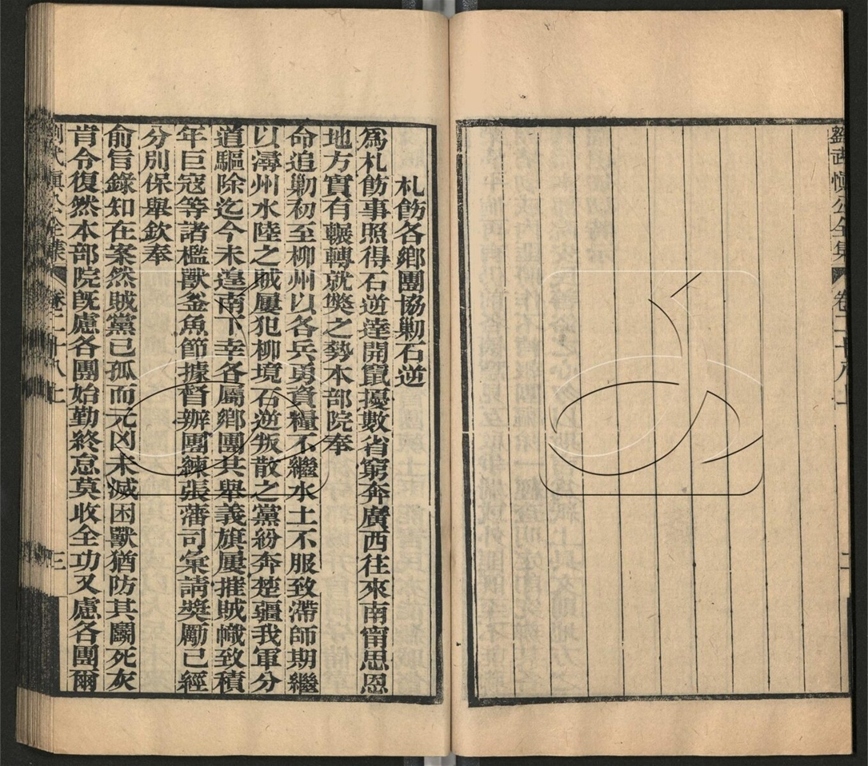 劉武慎公全集 卷二十八上 二
札飭各鄉團協勦石逆
爲札飭事照得石逆達開竄擾數省窮奔廣西往來南甯思恩
地方實有輾轉就獘之勢本部院奉
命追勦初至柳州以各兵勇資糧不繼水土不服致滯師期繼
以潯州水陸之賊屢犯柳境石逆叛散之黨紛奔楚疆我軍分
道驅除迄今未遑南下幸各屬鄉團共舉義旗屢摧賊幟致積
年巨寇等諸檻獸釜魚節據督辦團練張藩司彙請獎勵已經
分別保舉欽奉
俞旨錄知在案然賊黨已孤而元凶未滅困獸猶防其鬭死灰
肯令復然本部院旣慮各團始勤終怠莫收全功又慮各團爾
劉武慎公全集 卷二十八上 三